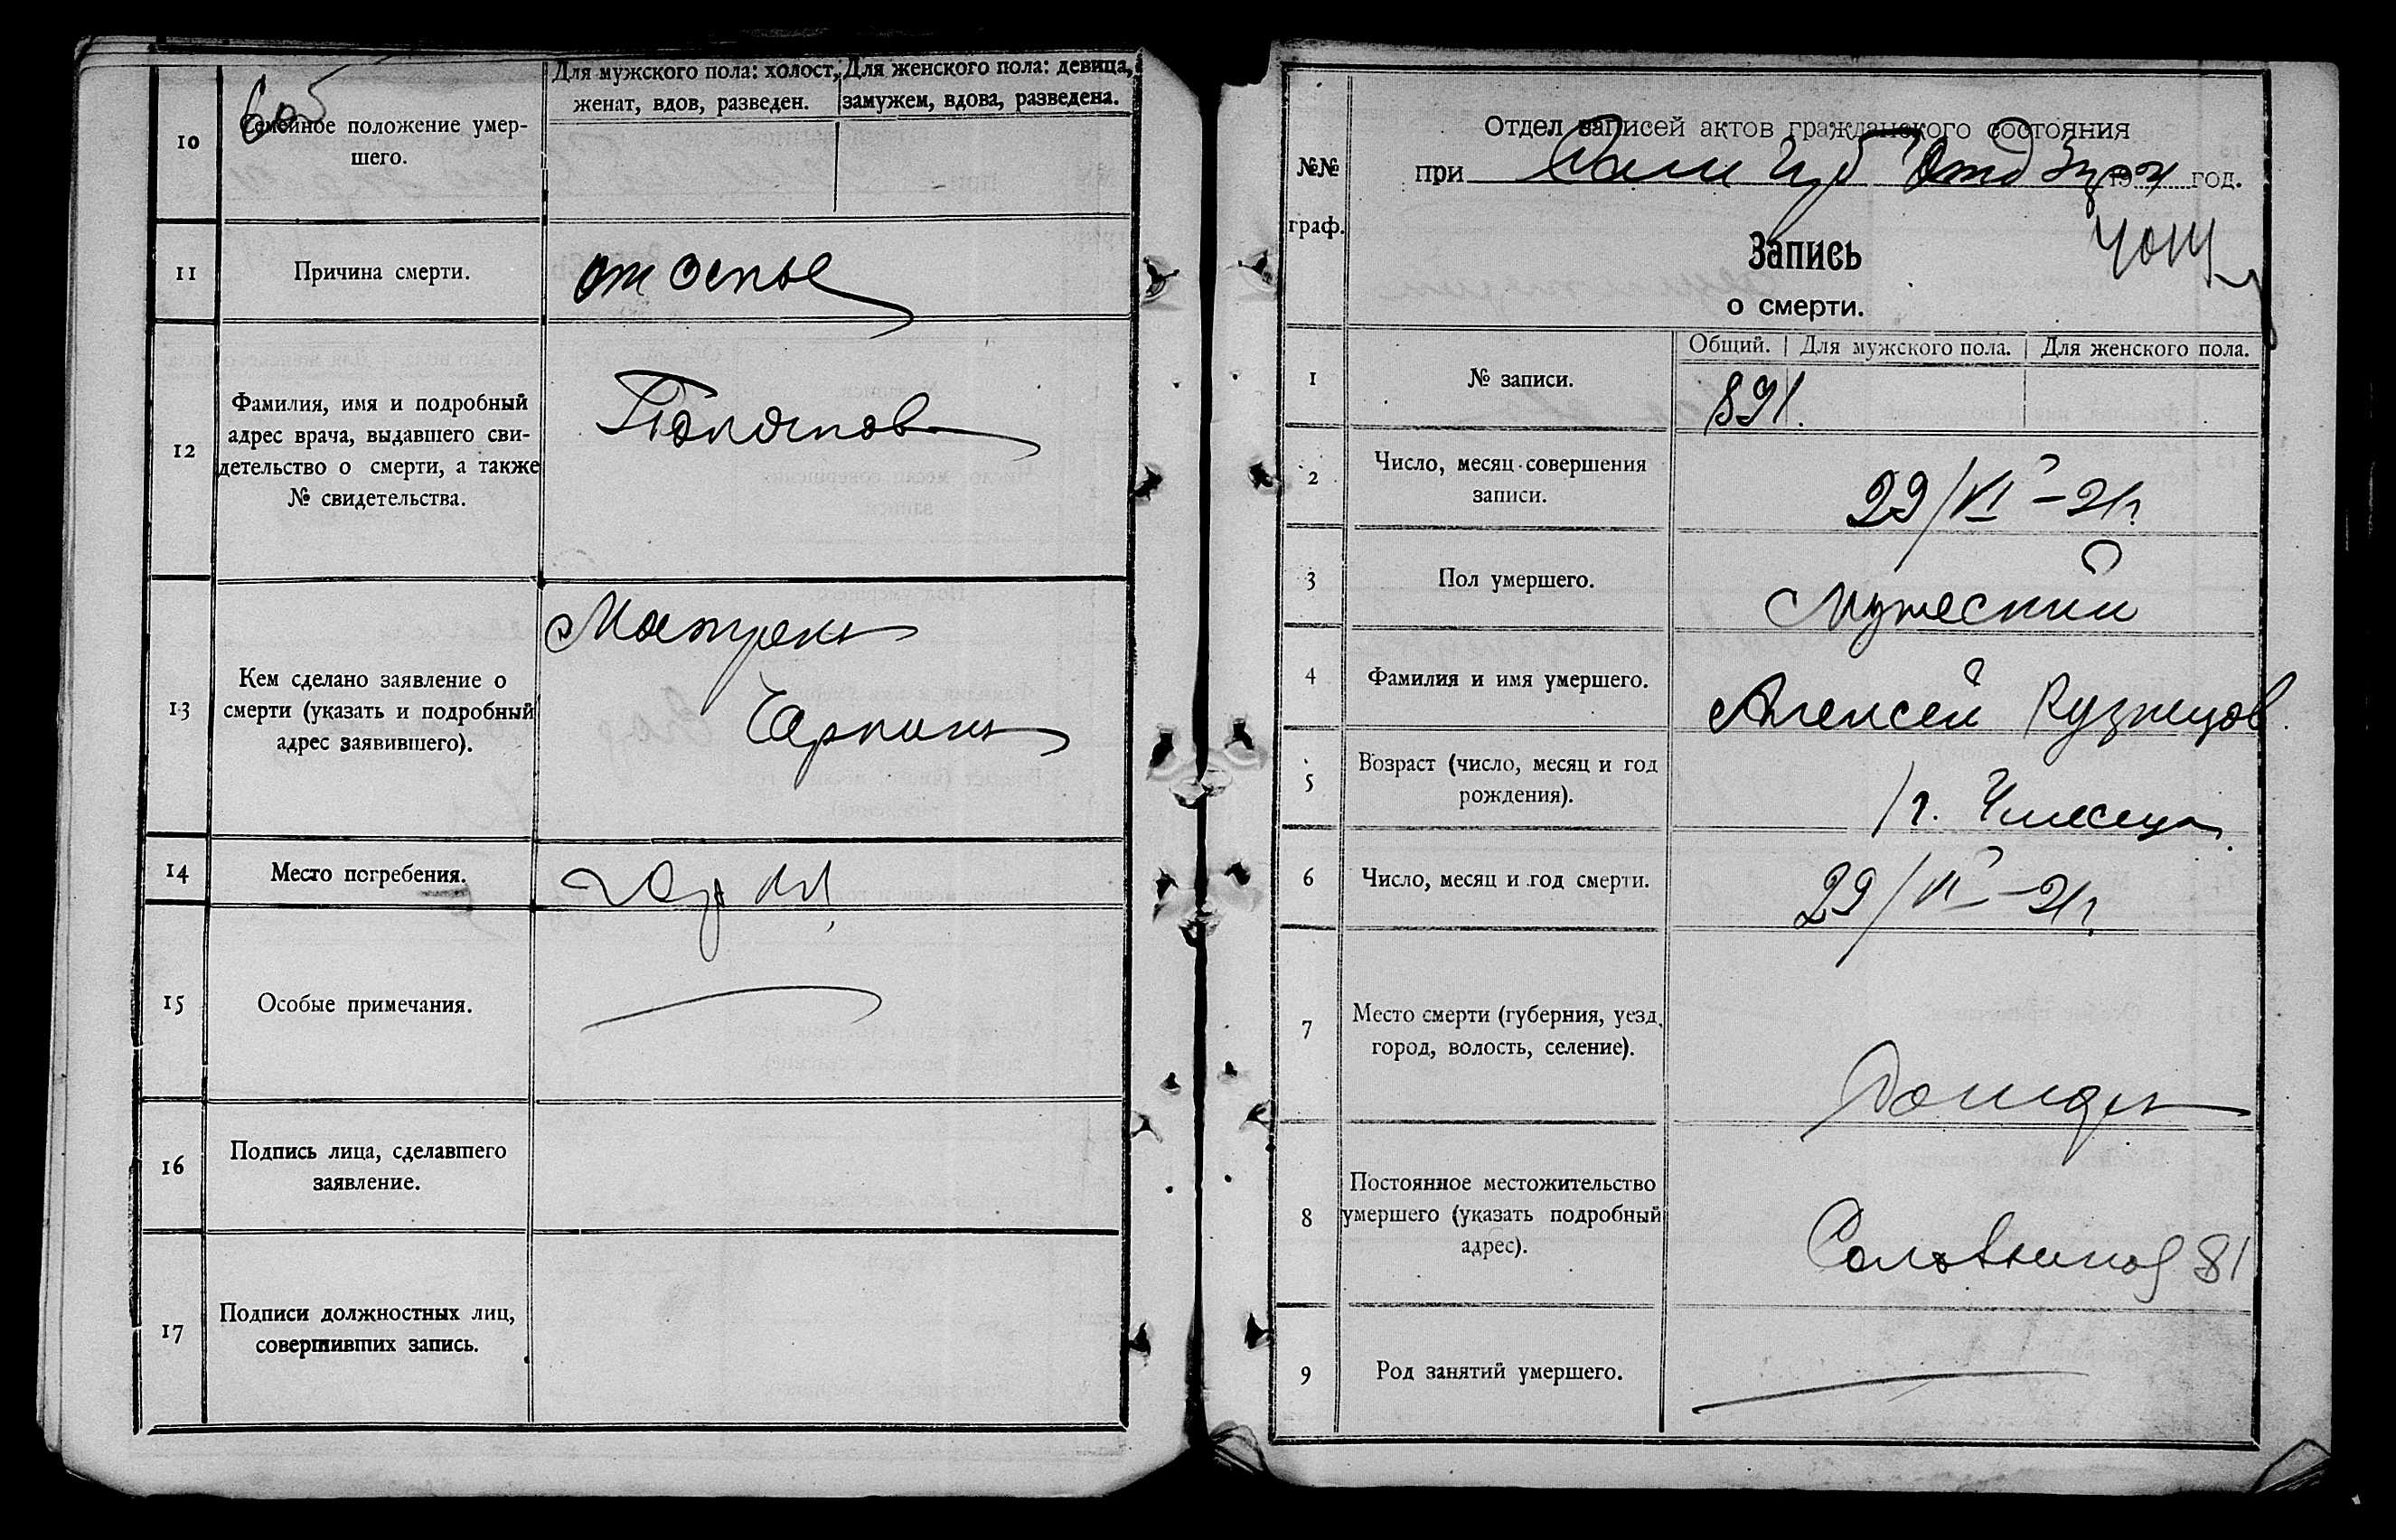 Для мужского пола: холост, женат, вдов, разведен.
Для женского пола: девица, замужем, вдова, разведена.
10
Семейное положение умер-
шего.
11
Причина смерти.
от оспы
12
Фамилия, имя и подробный
адрес врача, выдавшего сви-
детельство о смерти, а также
№ свидетельства.
13
Кем сделано заявление о
смерти (указать и подробный
адрес заявившего).
Матрена
14
Место погребения.
15
Особые примечания.
16
Подпись лица, сделавшего
заявление.
17
Подписи должностных лиц,
совершивших запись.
№№
граф.
Отдел записей актов гражданского состояния
при Губ Отд год.
Запись
о смерти.
Общий. Для мужского пола. Для женского пола.
1
№ записи.
891.
2
Число, месяц совершения
записи.
29/VI – 21г.
3
Пол умершего.
Мужеский
4
Фамилия и имя умершего.
Алексей Кузнецов
5
Возраст (число, месяц и год
рождения).
1 г. 4 месеца
6
Число, месяц и год смерти.
29/VI – 21г.
7
Место смерти (губерния, уезд,
город, волость, селение).
8
Постоянное местожительство
умершего (указать подробный
адрес).
81
9
Род занятий умершего.